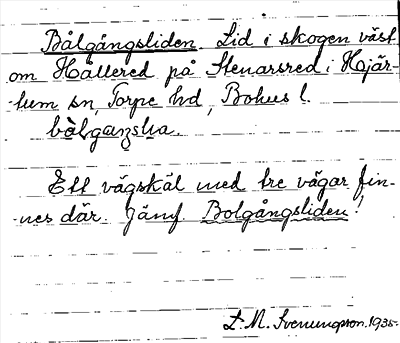 Bålgångsliden. Lid i skogen väst
om Hållered på Stenarsred i Hjär-
tum sn, Torpe hd, Bohus l.
bålgaŋslia.
Ett vägskäl med tre vägar fin-
nes där. Jämf. Bolgångsliden!
L. M. Svenungsson. 1935.